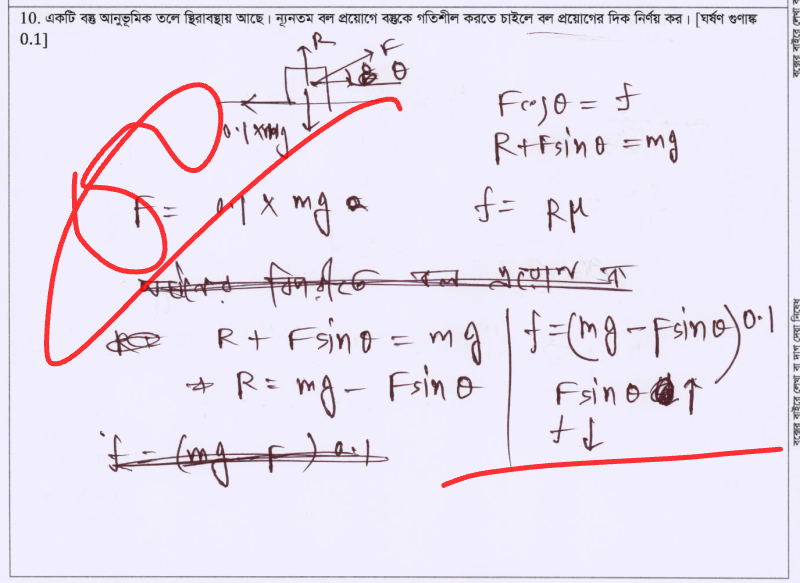 10. একটি বস্তু আনুভূমিক তলে স্থিরাবস্থায় আছে। ন্যূনতম বল প্রয়োগে বস্তুকে গতিশীল করতে চাইলে বল প্রয়োগের দিক নির্ণয় কর। [ঘর্ষণ গুণাঙ্ক
0.1]
R
F
θ
0.1 × mg
Fcosθ = f
R+Fsinθ = mg
F = 0.1 × mg
f = Rμ
R + Fsinθ = mg
⇒ R = mg − Fsinθ
f = (mg − F ) 0.1
f = (mg − Fsinθ) 0.1
Fsinθ ↑
f ↓